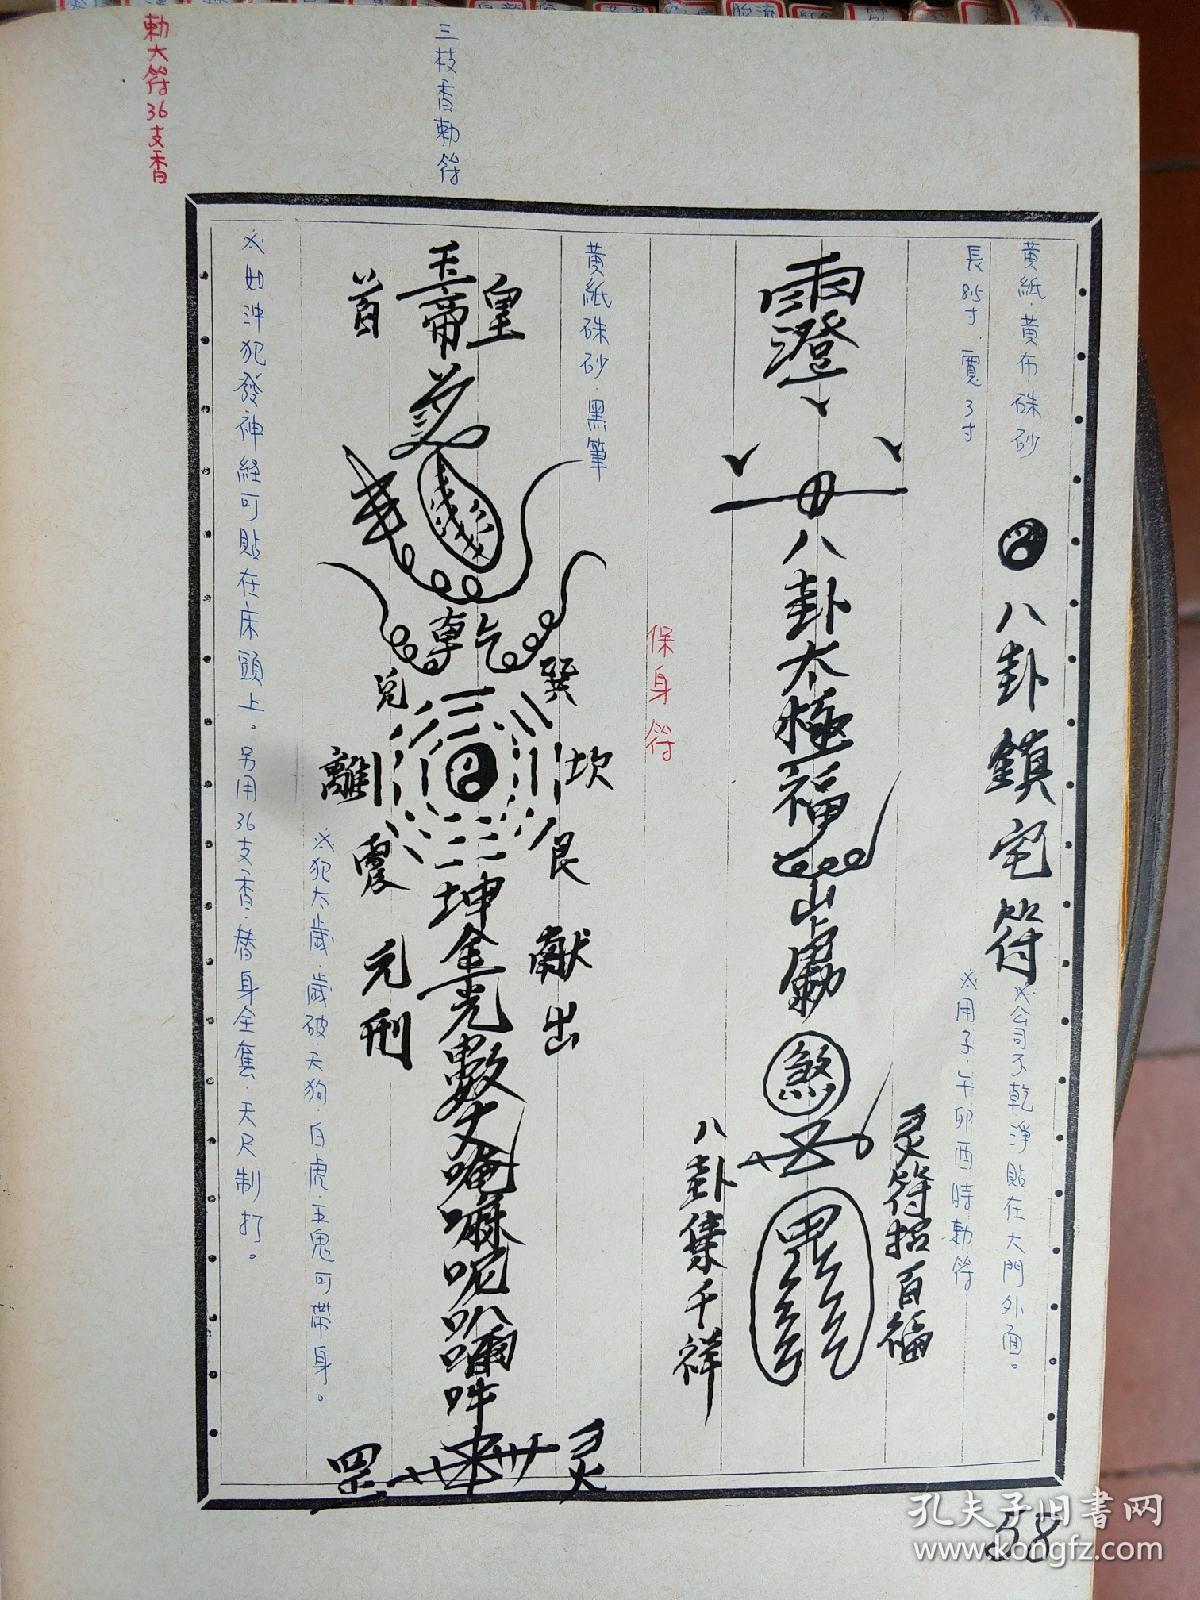 黄紙.黄布硃砂
長85寸.寬3寸
八卦鎮宅符
※公司不乾淨貼在大門外面。
※用子.午卯酉時勅符
八卦太極福
煞
灵符招百福
八卦集千祥
保身符
黄紙硃砂.黑筆
三枝香勅符
玉皇
帝
首
乾
巽
兌
坎
離
艮
震
坤
金光
献出
元刑
罡
灵
※犯太歲.歲破天狗.白虎.五鬼可帶身。
※如沖犯發神経可貼在床頭上。另用36支香.替身全隻.天尺制打。
勅大符36支香
58
孔夫子旧書网
www.kongfz.com